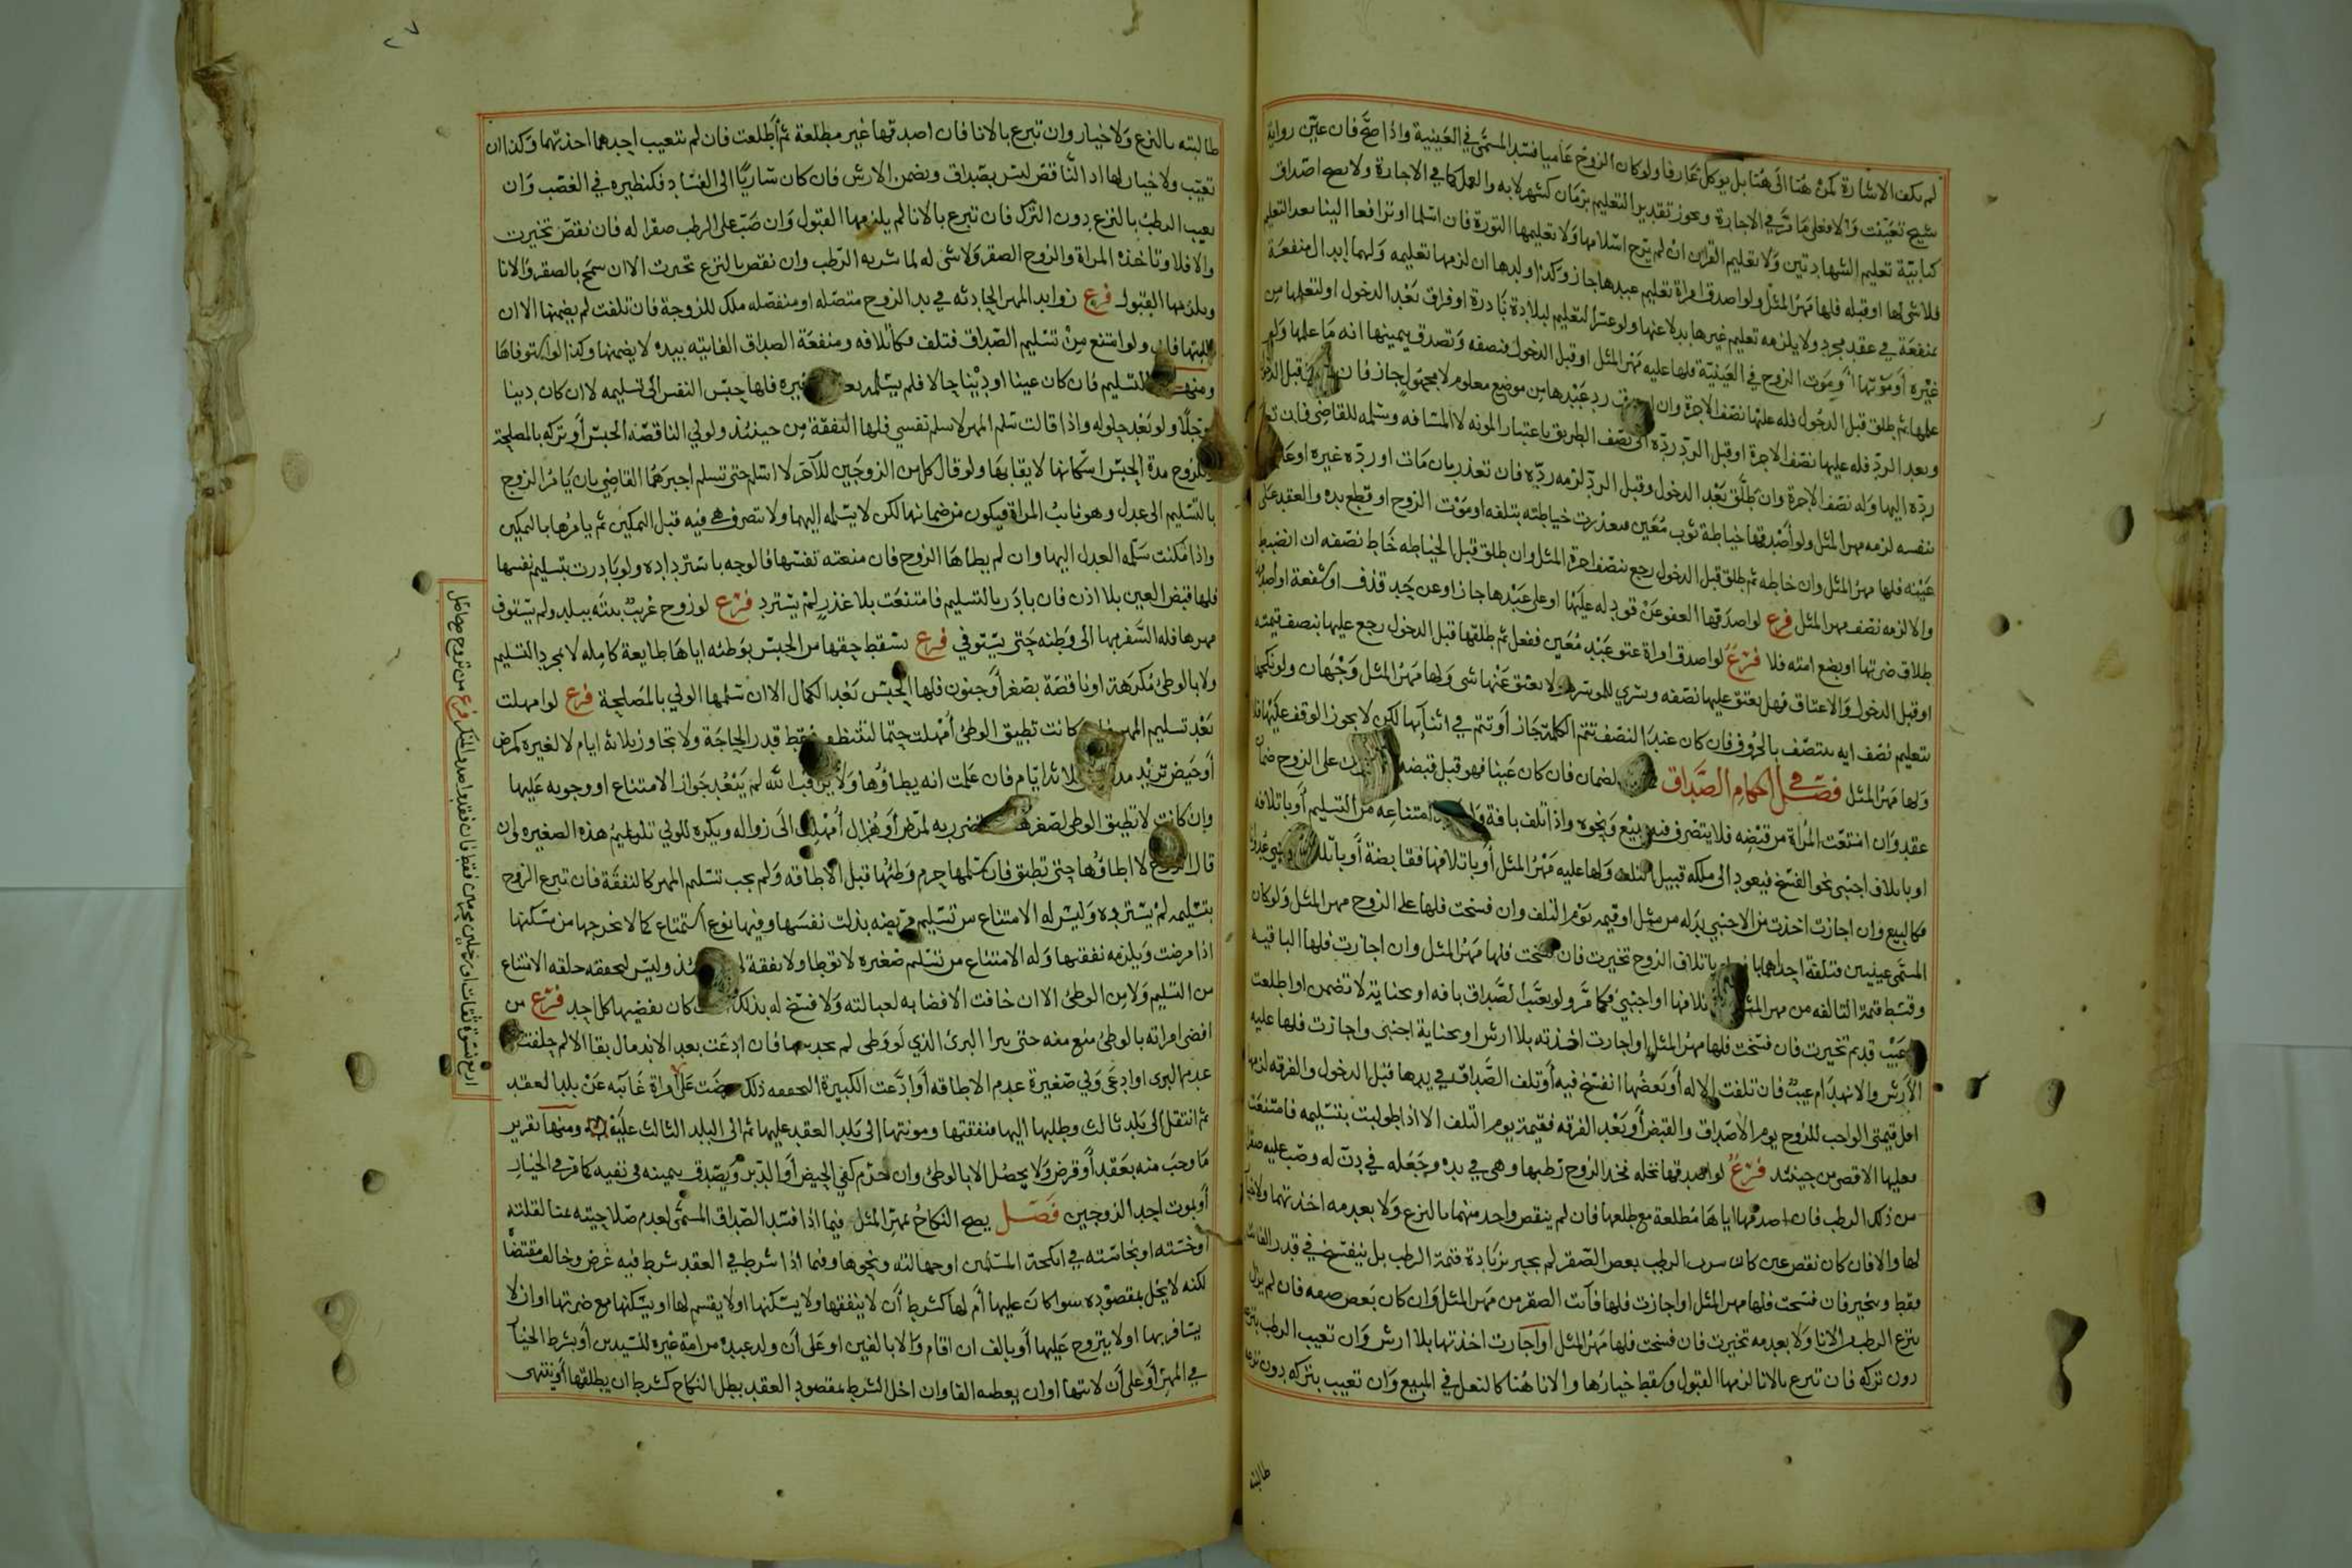 لم تكف الاشارة كمن هنا الى هنا بل يوكل عارفا ولو كان الزوج عاميا فسد المسمى في العينية واذا صح فان عين رواية
شيخ تعينت والا فعلى ما مر في الاجارة ويجوز تقدير التعليم بزمان كشهر لا به والعمل كما في الاجارة ولا يصح اصداق
كتابية تعليم الشهادتين ولا تعليم القران ان لم يرج اسلامها ولا تعليمها التورة فان اسلما او ترافعا الينا بعد التعليم
فلا شى لها او قبله فلها مهر المثل ولو اصدق امراة تعليم عبدها جاز وكذا ولدها ان لزمها تعليمه ولهما ابدال منفعة
بمنفعة في عقد مجرد ولا يلزمه تعليم غيرها بدلا عنها ولو عسر التعليم لبلادة نادرة او فراق بعد الدخول او لتعلمها من
غيره او موتها او موت الزوج في العينية فلها عليه مهر المثل او قبل الدخول فنصفه وتصدق بيمينها انه ما علمها ولو
علمها ثم طلق قبل الدخول فله عليها نصف الاجرة وان رد عبدها من موضع معلوم لا مجهول جاز فان قبل الدخول
وبعد الرد فله عليها نصف الاجرة او قبل الرد رده الى نصف الطريق باعتبار المونه لا المسافه وسلمه للقاضي فان
رده اليها وله نصف الاجرة وان طلق بعد الدخول وقبل الرد لزمه رده فان تعذر بان مات او رده غيره او
بنفسه لزمه مهر المثل ولو اصدقها خياطة ثوب معين فتعذرت خياطته بتلفه او موت الزوج او قطع يده والعقد على
عينه فلها مهر المثل وان خاطه ثم طلق قبل الدخول رجع بنصف اجرة المثل وان طلق قبل الخياطه خاط نصفه ان انضبط
والا لزمه نصف مهر المثل فرع لو اصدقها العفو عن قود له عليها او على عبدها جاز او عن حد قذف او شفعة او اصدقها
طلاق ضرتها او بضع امته فلا فرع لو اصدق امراة عتق عبد معين ففعل ثم طلقها قبل الدخول رجع عليها بنصف قيمته
او قبل الدخول والاعتاق فهل يعتق عليها نصفه ويسري للموسرة او لا يعتق عنها شى ولها مهر المثل وجهان ولو نكحها
بتعليم نصف ايه ينتصف بالحروف فان كان عند النصف تتم الكلمة جاز او تتم في اثنآئها لكن لا يجوز الوقف عليها فلا
ولها مهر المثل فصل في احكام الصداق لضمان فان كان عينا فهو قبل قبضه على الزوج ضمان
عقد وان امتنعت المراة من قبضه فلا يتصرف فيه ببيع ونحوه واذا تلف بافة امتناعه من التسليم او باتلافه
او باتلاف اجنبي نحو الفسخ فيعود الى ملكه قبيل التلف ولها عليه مهر المثل او باتلافها فقابضة او
كالبيع وان اجازت اخذت من الاجنبي بدله من مثل او قيمه يوم التلف وان فسخت فلها على الزوج مهر المثل ولو كان
المسمى عينين فتلفت احداهما باتلاف الزوج تخيرت فان فسخت فلها مهر المثل وان اجازت فلها الباقيه
وقسط قيمة التالفه من مهر المثل باتلافها او اجنبي فكما مر ولو تعيب الصداق بافه او بجناية لا تضمن او اطلعت
عيب قديم تخيرت فان فسخت فلها مهر المثل او اجازت اخذته بلا ارش او بجناية اجنبي واجازت فلها عليه
الارش والانهدام عيب فان تلفت الاله او بعضها انفسخ فيه او تلف الصداق في يدها قبل الدخول والفرقه لزمها
اقل قيمتي الواجب للزوج يوم الاصداق والقبض او بعد الفرقه فقيمة يوم التلف الا اذا طولبت بتسليمه فامتنعت
فعليها الاقصى من حينئذ فرع لو اصدقها نخله نخذ الزوج رطبها وهي في يده وجعله في دن له وصب عليه صقر
من ذلك الرطب فان اصدقها اياها مطلعة مع طلعها فان لم ينقص واحد منهما بالنزع ولا بعدمه اخذتهما ولا خيار
لها والا فان كان نقص عين كان شرب الرطب بعض الصقر لم يجبر بزيادة قيمة الرطب بل ينفسخ في قدر الفائت
فقط وتتخير فان فسخت فلها مهر المثل او اجازت فلها فآئت الصقر من مهر المثل وان كان بعض صفه فان لم يزل
بنزع الرطب والانا ولا بعدمه تخيرت فان فسخت فلها مهر المثل او اجازت اخذتها بلا ارش وان تعيب الرطب بنزعه
دون تركه فان تبرع بالانا لزمها القبول وسقط خيارها والانا هنا كالنعل في المبيع وان تعيب بتركه دون نزعه
طالبته
٢٧
طالبته بالنزع ولا خيار وان تبرع بالانا فان اصدقها غير مطلعة ثم اطلعت فان لم تتعيب احدهما اخذتهما وكذا ان
تعيب ولا خيار لها اذ الناقص ليس بصداق ويضمن الارش فان كان ساريًا الى الفساد فكنظيره في الغصب وان
تعيب الرطب بالنزع دون الترك فان تبرع بالانا لم يلزمها القبول وان صب على الرطب صقرا له فان نقص تخيرت
والا فلا وتاخذه المراة والزوج الصقر ولا شى له لما شربه الرطب وان نقص بالنزع تخيرت الا ان سمح بالصقر والانا
ويلزمها القبول فرع زوايد المهر الحادثه في يد الزوج متصله او منفصله ملك للزوجة فان تلفت لم يضمنها الا ان
طلبتها فابى ولو امتنع من تسليم الصداق فتلف فكاتلافه ومنفعة الصداق الفايته بيده لا يضمنها وكذا لو استوفاها
ومنها التسليم فان كان عينا او دينا حالا فلم يسلمه بعذر غيره فلها حبس النفس الى تسليمه لا ان كان دينا
موجلًا ولو بعد حلوله واذا قالت سلم المهر لاسلم نفسي فلها النفقة من حينئذ ولولي الناقصه الحبس او تركه بالمصلحة
وللزوج مدة الحبس اسكانها لا يقابها ولو قال كل من الزوجين للآخر لا اسلم حتى تسلم اجبرهما القاضي بان يامر الزوج
بالتسليم الى عدل وهو نائب المراة فيكون من ضمانها لكن لا يسلمه اليها ولا تتصرف هي فيه قبل التمكين ثم يامرها بالتمكين
واذا مكنت سلمه العدل اليها وان لم يطاها الزوج فان منعته نفسها فالوجه باسترداده ولو بادرت بتسليم نفسها
فلها قبض العين بلا اذن فان بادر بالتسليم فامتنعت بلا عذر لم يسترد فرع لو زوج غريب بنته ببلد ولم يستوف
مهرها فله السفر بها الى وطنه حتى يستوفي فرع يسقط حقها من الحبس بوطئه اياها طايعة كامله لا بمجرد التسليم
ولا بالوطئ مكرهة او ناقصة بصغر او جنون فلها الحبس بعد الكمال الا ان سلمها الولي بالمصلحة فرع لو امهلت
بعد تسليم المهر كانت تطيق الوطئ أمهلت حتما لتتنظف فقط قدر الحاجة ولا يتجاوز ثلاثه ايام لا لغيره كمرض
او حيض تزيد مدته ثلاثة ايام فان علمت انه يطاؤها ولا يراقب الله لم يبعد جواز الامتناع او وجوبه عليها
وان كانت لا تطيق الوطى لصغر تتضرر به لمرض او هزال أمهلت الى زواله ويكره للولي تسليم هذه الصغيره ولو
قال الزوج لا اطاؤها حتى تطيق فان سلمها حرم وطئها قبل الاطاقه ولم يجب تسليم المهر كالنفقة فان تبرع الزوج
بتسليمه لم يسترده وليس له الامتناع من تسليم مريضه بذلت نفسها وفيها نوع استمتاع كما لا يخرجها من مسكنها
اذا مرضت ويلزمه نفقتها وله الامتناع من تسلم صغيره لا توطا ولا نفقة لها وليس لحمقه حلقه الامتناع
من التسليم ولا من الوطئ الا ان خافت الافضا به لعبالته ولا فسخ له بذلك كان يفضيها كل احد فرع من
افضى امراته بالوطئ منع منه حتى يبرا البرئ الذي لو وطى لم يخدشها فان ادعت بعد الاندمال بقا الالم حلفت
عدم البرى او ادعى ولي صغيرة عدم الاطاقه او ادعت الكبيرة المحققه ذلك عرضت على امراة غايبه عن بلد العقد
ثم انتقل الى بلد ثالث وطلبها اليها فنفقتها ومونتها الى بلد العقد عليها ثم الى البلد الثالث عليه ومنها تقرير
ما وجب منه بعقد او فرض ولا يحصل الا بالوطئ وان حرم كفي الحيض او الدبر ويصدق بيمينه في نفيه كما مر في الخيار
او بموت احد الزوجين فصل يصح النكاح بمهر المثل فيما اذا فسد الصداق المسمى لعدم صلاحيته ثمنا لقلته
او خسته او نجاسته في انكحة المسلمين او جهالته ونحوها وفيما اذا شرط في العقد شرط فيه غرض وخالف مقتضاه
لكنه لا يخل بمقصوده سوا كان عليها ام لها كشرط ان لا ينفقها ولا يسكنها او لا يقسم لها او يسكنها مع ضرتها او ان لا
يسافر بها او لا يتزوج عليها او بالف ان اقام والا بالفين او على ان ولد عبده من امة غيره للسيدين او بشرط الخيار
في المهر او على ان لابنها او ان يعطيه الفا وان اخل الشرط بمقصود العقد بطل النكاح كشرط ان يطلقها او ينتهى
فرع من تزوج